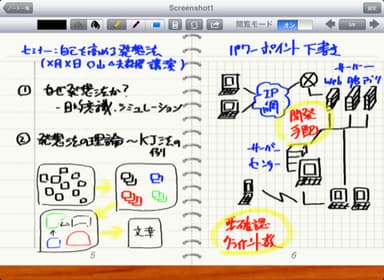 ノート一覧
Screenshot1
閲覧モード
オン
セミナー:自己を高める発想法
(×月×日 〇山△夫教授 講演)
① なぜ発想法か?
- 目的意識、シミュレーション
② 発想法の理論~KJ法の
例
文章
5
パワーポイント下書き
サーバー
Web DB
IP
網
開発
手配
サーバー
センター
要確認
クライアント数
6